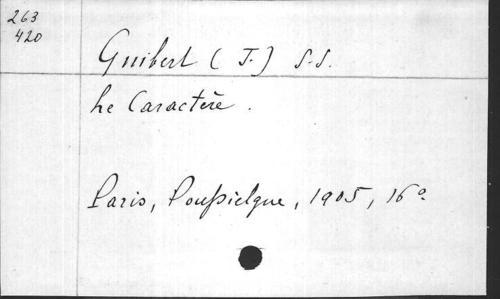 263
420
Guibert (J.) S.S.
Le Caractère.
Paris, Poussielgue, 1905, 16º